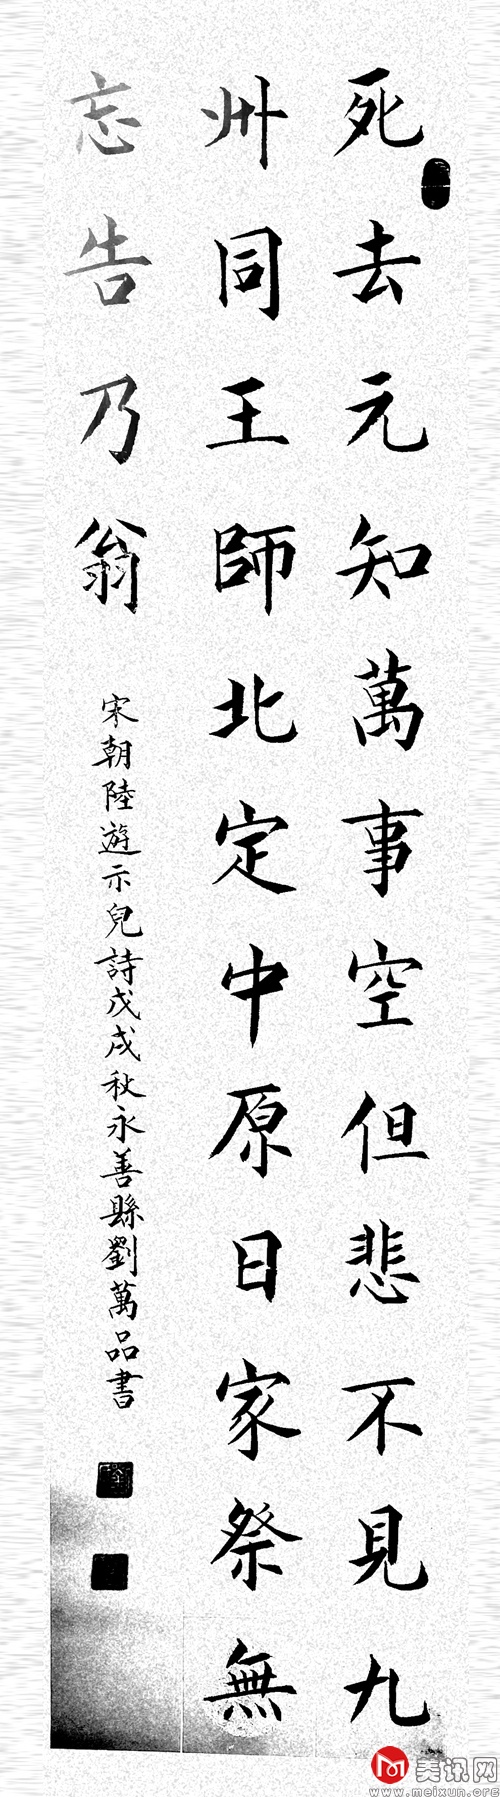 死去元知萬事空但悲不見九
州同王師北定中原日家祭無
忘告乃翁
宋朝陸遊示兒詩戊戌秋永善縣劉萬品書
美讯网
www.meixun.org